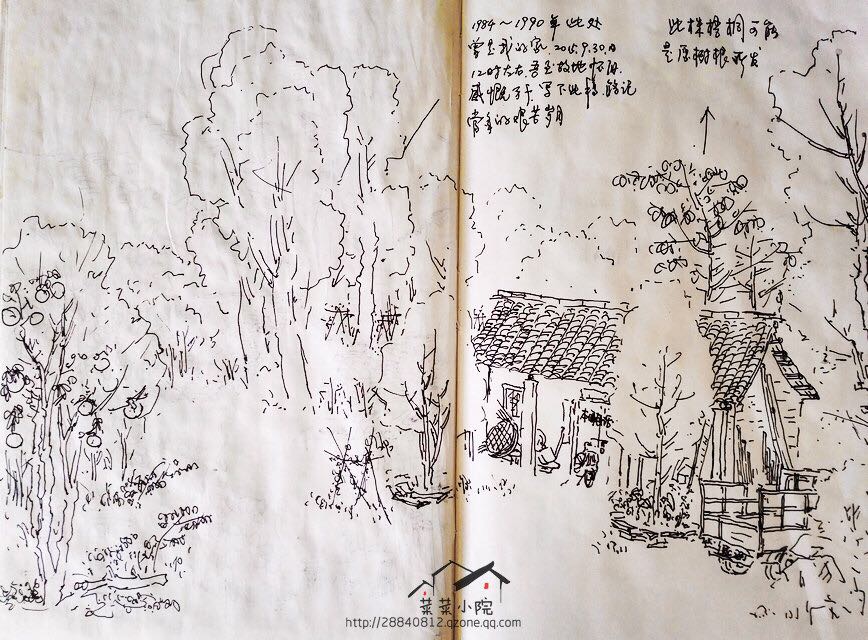 1984～1990年此处
曾是我的家，2015.9.30.日
12时左右，吾至故地怀旧，
感慨万千，写下此
当年的艰苦岁月
此株梧桐可能
是原树根所发
菜菜小院
http://28840812.qzone.qq.com